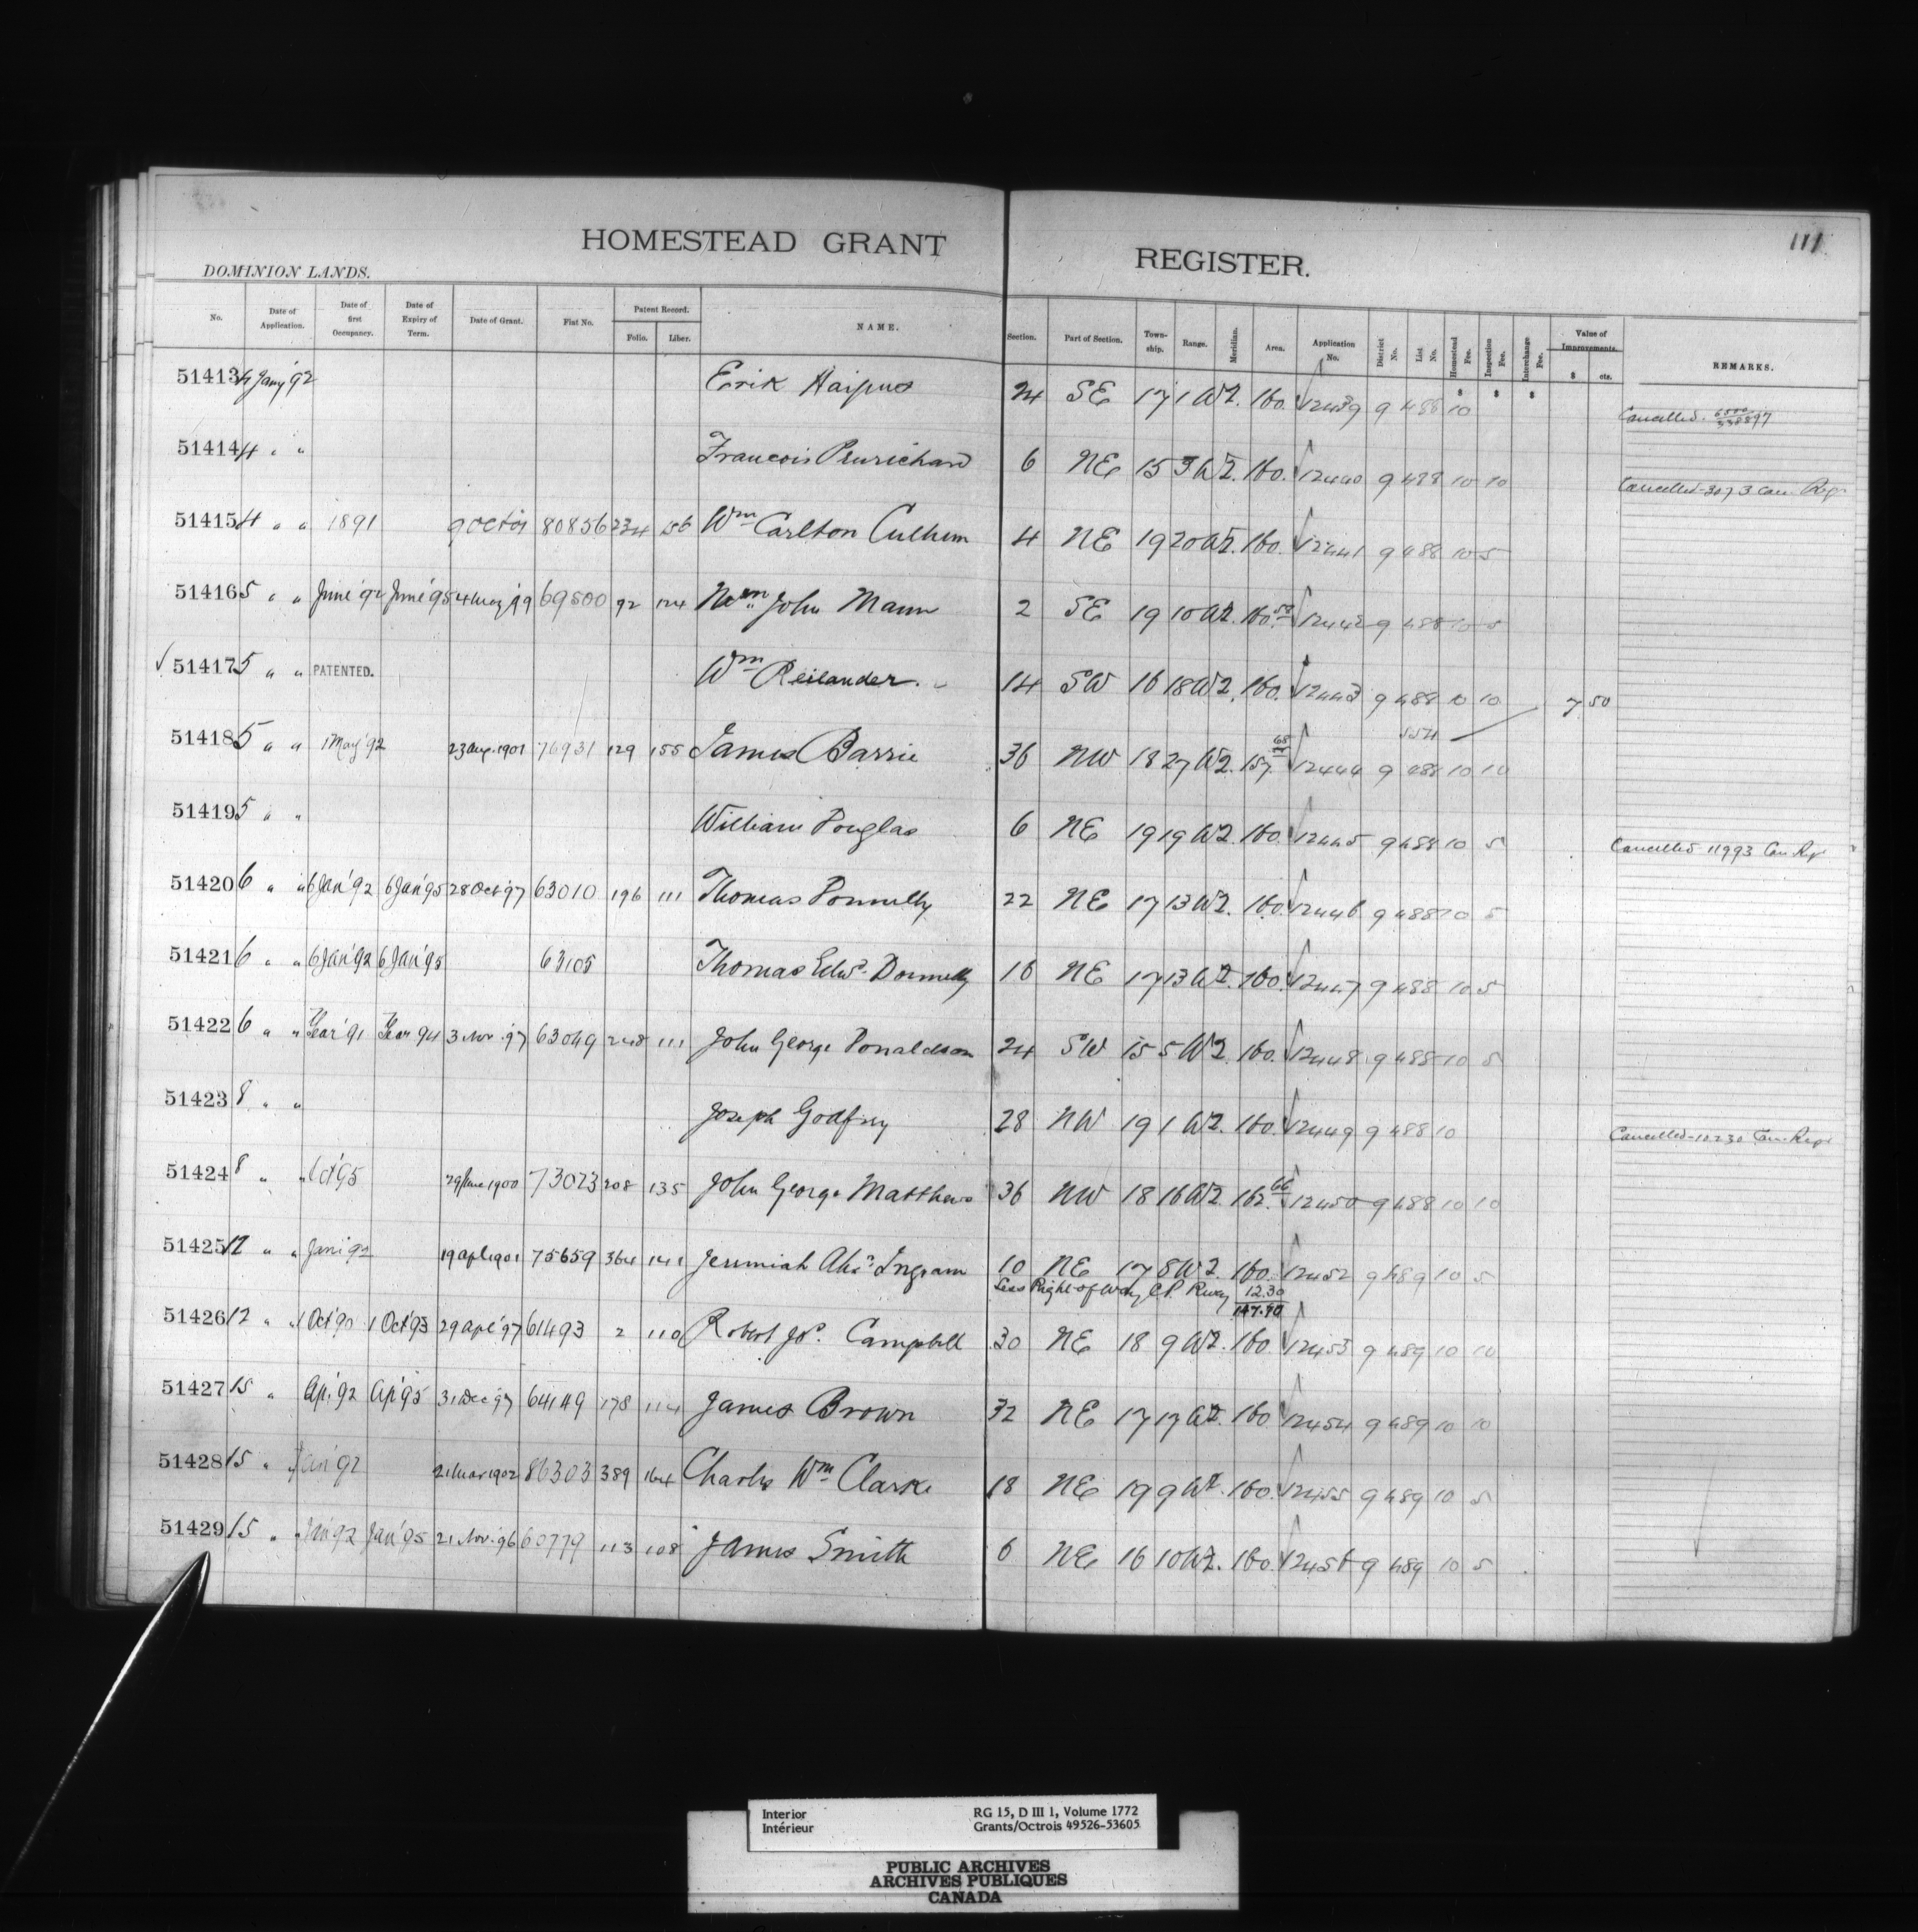 111
HOMESTEAD GRANT REGISTER.
DOMINION LANDS.
No. Date of Application. Date of first Occupancy. Date of Expiry of Term. Date of Grant. Fiat No. Patent Record. Folio. Liber. NAME. Section. Part of Section. Town-ship. Range. Meridian. Area. Application No. District No. List No. Homestead Fee. Inspection Fee. Interchange Fee. Value of Improvements. $ cts. REMARKS.
$ $ $
51413 4 Jany '92 Erik 24 SE 17 1 W2. 160. 12439 9 488 10 Cancelled.
51414 4 " " Francois 6 NE 15 3 W2. 160. 12440 9 488 10 10 Cancelled 3073 Can. Regr
51415 4 " " 1891 9 Oct 01 80856 234 156 Wm Carlton Culhum 4 NE 19 20 W2. 160. 12441 9 488 10 5
51416 5 " " June '92 June '95 4 May 99 69500 92 124 Wm John Mann 2 SE 19 10 W2. 160. 12442 9 488 10 5
51417 5 " " PATENTED. Wm Reilander. 14 SW 16 18 W2. 160. 12443 9 488 10 10 7 50
51418 5 " " 1 May '92 23 Aug. 1901 76931 129 155 James Barrie 36 NW 18 27 W2. 157. 68 12444 9 488 10 10
51419 5 " " William Douglas 6 NE 19 19 W2. 160. 12445 9 488 10 5 Cancelled 11993 Can Regr
51420 6 " " 6 Jan '92 6 Jan '95 28 Oct '97 63010 196 111 Thomas Donnelly 22 NE 17 13 W2. 160. 12446 9 488 10 5
51421 6 " " 6 Jan '92 6 Jan '95 63105 Thomas Edwd. Donnelly 16 NE 17 13 W2. 160. 12447 9 488 10 5
51422 6 " " Year '91 Year 94 3 Nov. '97 63049 248 111 John George Donaldson 24 SW 15 5 W2. 160. 12448 9 488 10 5
51423 8 " " Joseph Godfrey 28 NW 19 1 W2. 160. 12449 9 488 10 Cancelled 10230 Can. Regr
51424 8 " " Oct '95 29 June 1900 73023 208 135 John George Matthews 36 NW 18 16 W2. 162. 66 12450 9 488 10 10
51425 12 " " Jan '92 19 Apl 1901 75659 364 141 Jeremiah Ingram 10 NE 17 8 W2. 160. 12452 9 489 10 5
Less Right of Way C.P. Rway 12.30
147.70
51426 12 " " 1 Oct '90 1 Oct '93 29 Apl '97 61493 2 110 Robert Jos. Campbell 30 NE 18 9 W2. 160 12453 9 489 10 10
51427 15 " Ap. '92 Ap '95 31 Dec '97 64149 178 114 James Brown 32 NE 17 17 W2. 160 12454 9 489 10 10
51428 15 " " Jan '92 21 Mar 1902 86303 389 164 Charles Wm Clarke 18 NE 19 9 W2. 160. 12455 9 489 10 5
51429 15 " " Jan '92 Jan '95 21 Nov. '96 60779 113 108 James Smith 6 NE 16 10 W2. 160. 12456 9 489 10 5
Interior RG 15, D III 1, Volume 1772
Intérieur Grants/Octrois 49526-53605
PUBLIC ARCHIVES
ARCHIVES PUBLIQUES
CANADA